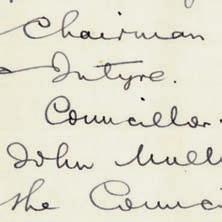 Chairman
Intyre.
Councillor.
John Mull
the Counci